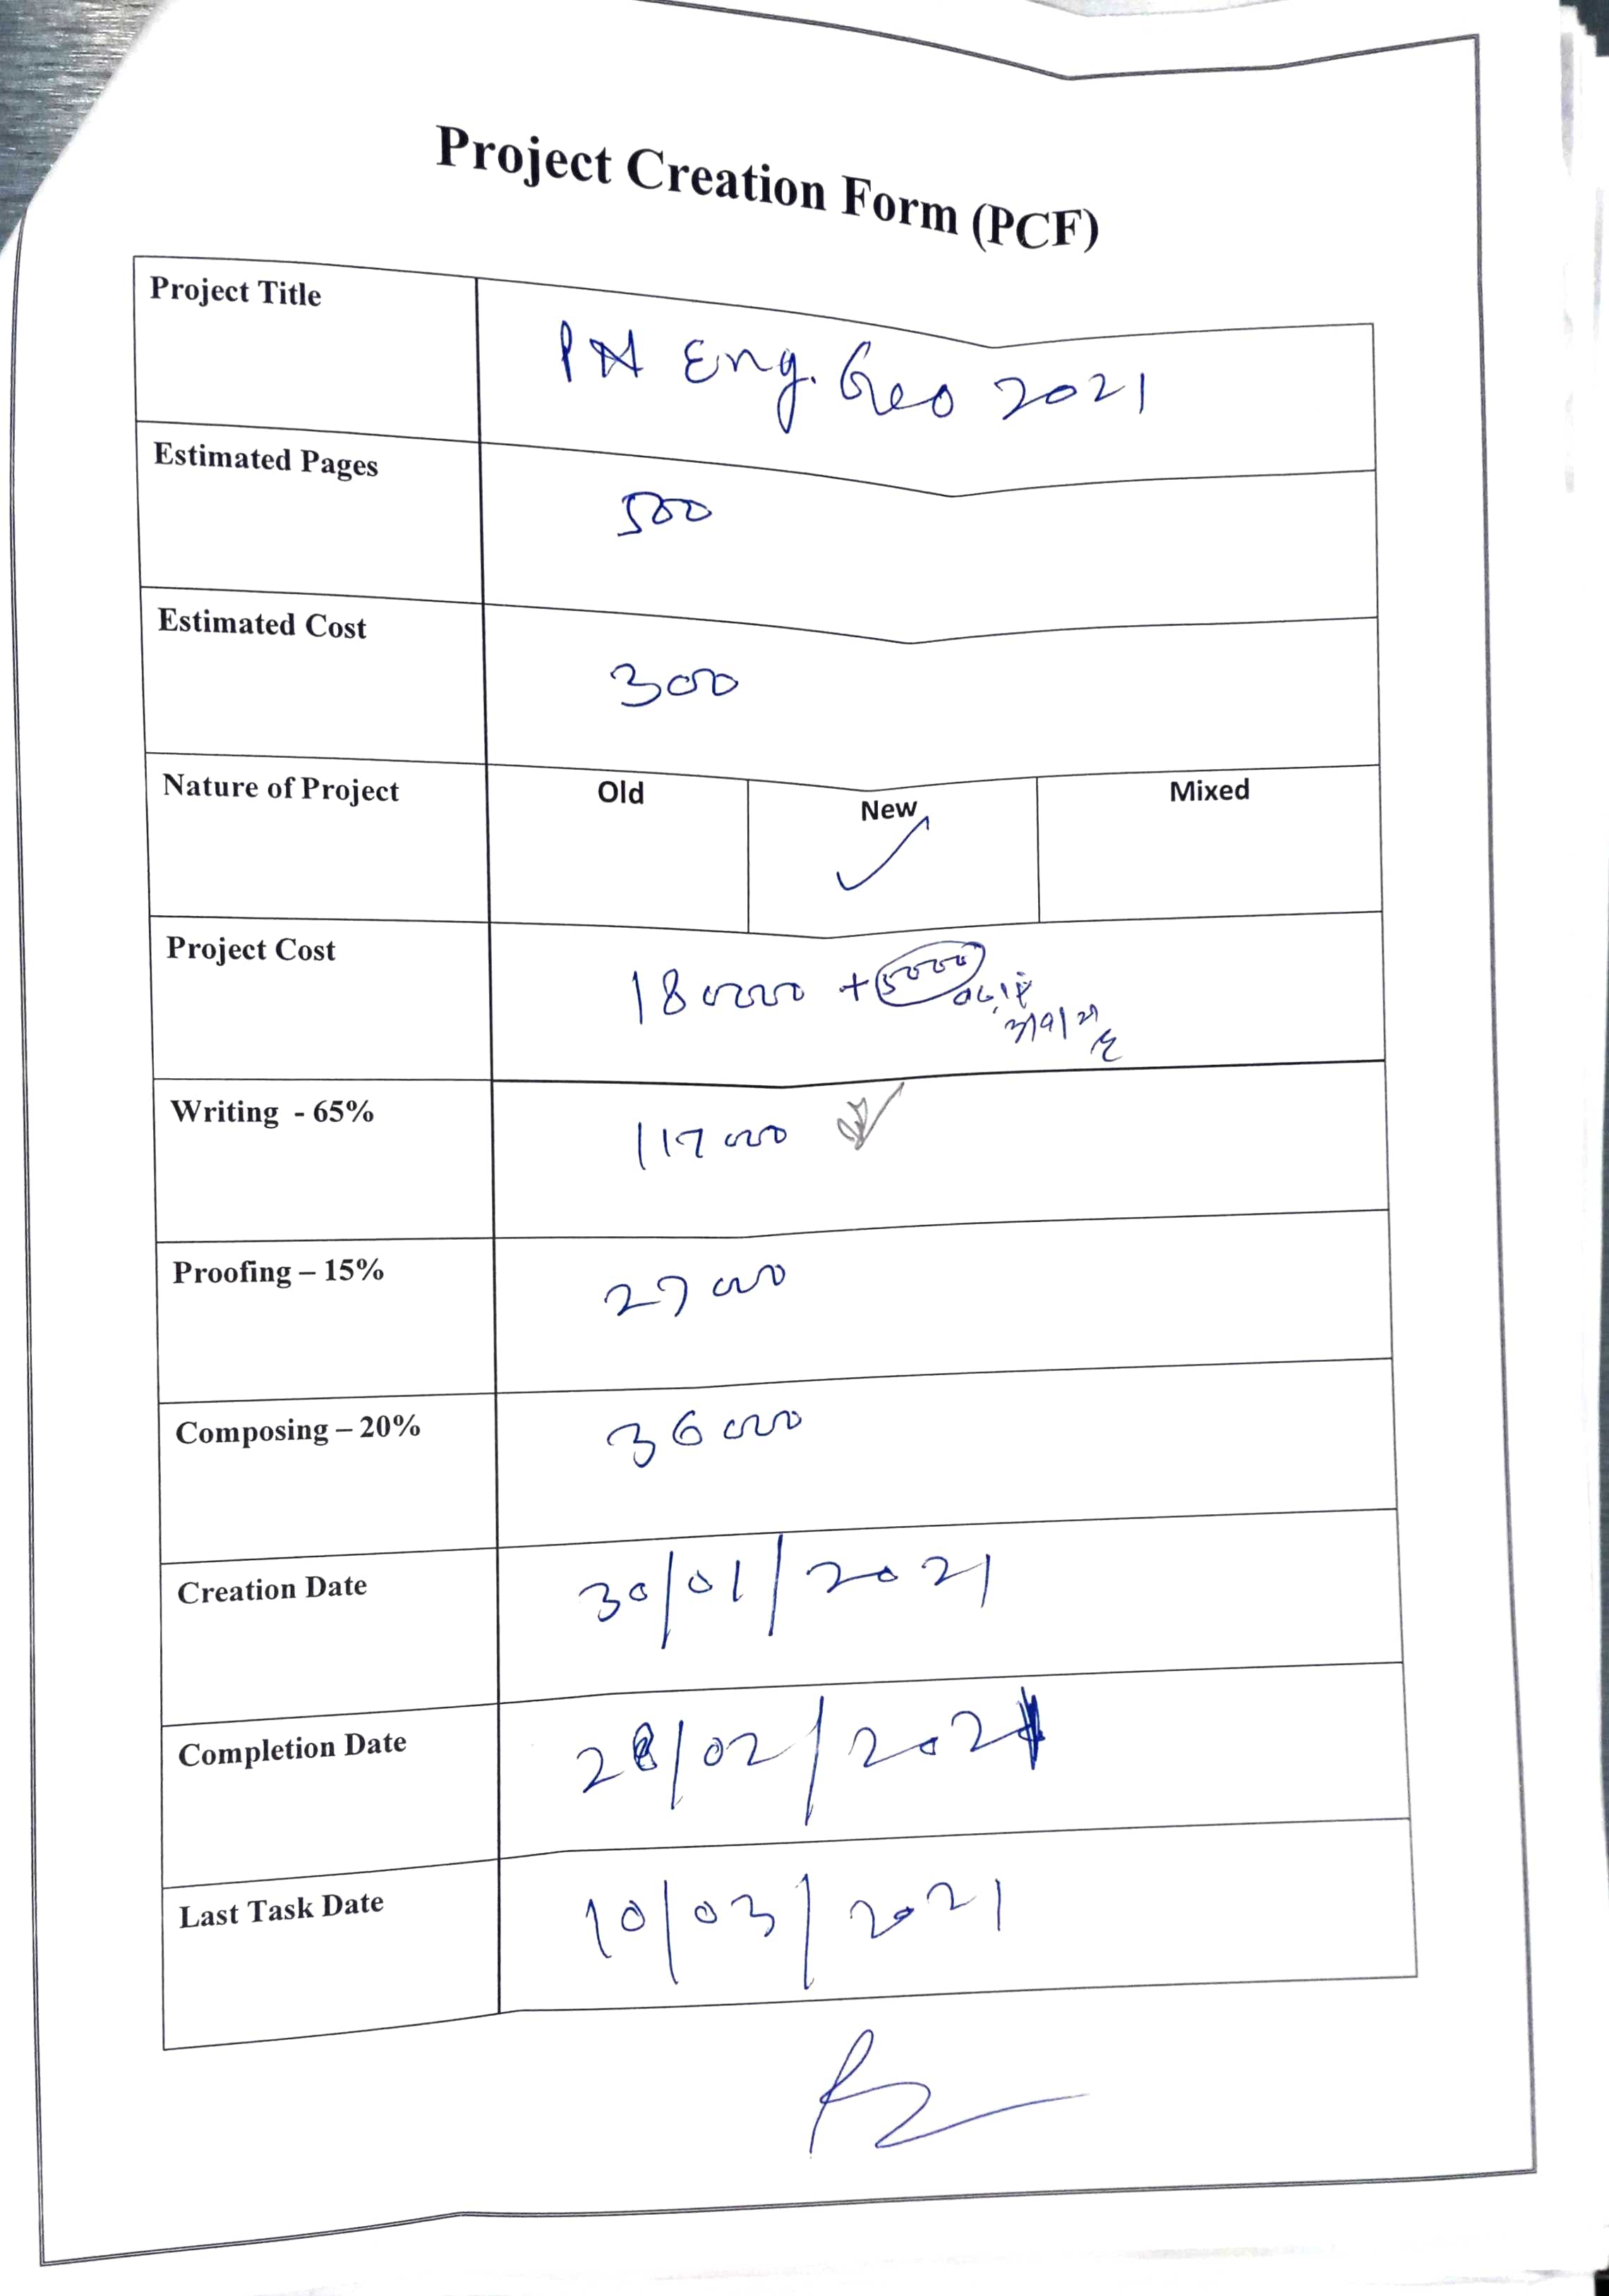 Project Creation Form (PCF)
Project Title
Eng. Geo 2021
Estimated Pages
500
Estimated Cost
300
Nature of Project Old New Mixed
Project Cost
180000 + 5000
Writing - 65%
117000
Proofing – 15%
27000
Composing – 20%
36000
Creation Date
30/01/2021
Completion Date
28/02/2021
Last Task Date
10/03/2021